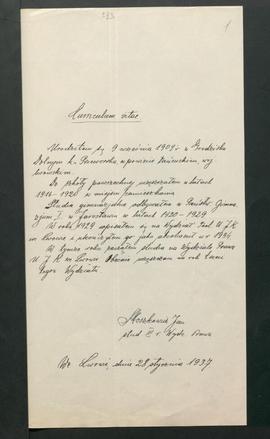 1
Curriculum vitae
Urodziłem się 9 września 1909 r. w Grodzisku
Dolnym k. Przeworska, w powiecie
Do szkoły powszechnej uczęszczałem w latach
1916 - 1920 w miejscu zamieszkania
Studia gimnazjalne odbywałem w Państw. Gimna-
zjum I. w Jarosławiu w latach 1920 - 1929
W roku 1929 zapisałem się na Wydział Teol. U J K
we Lwowie i ukończyłem go jako absolwent w r. 1934
W tymże roku zacząłem studia na Wydziale Prawa
U J K we Lwowie. Obecnie uczęszczam na rok
tegoż Wydziału
Jan
stud. r. Wydz. Prawa
We Lwowie, dnia 28 stycznia 1937